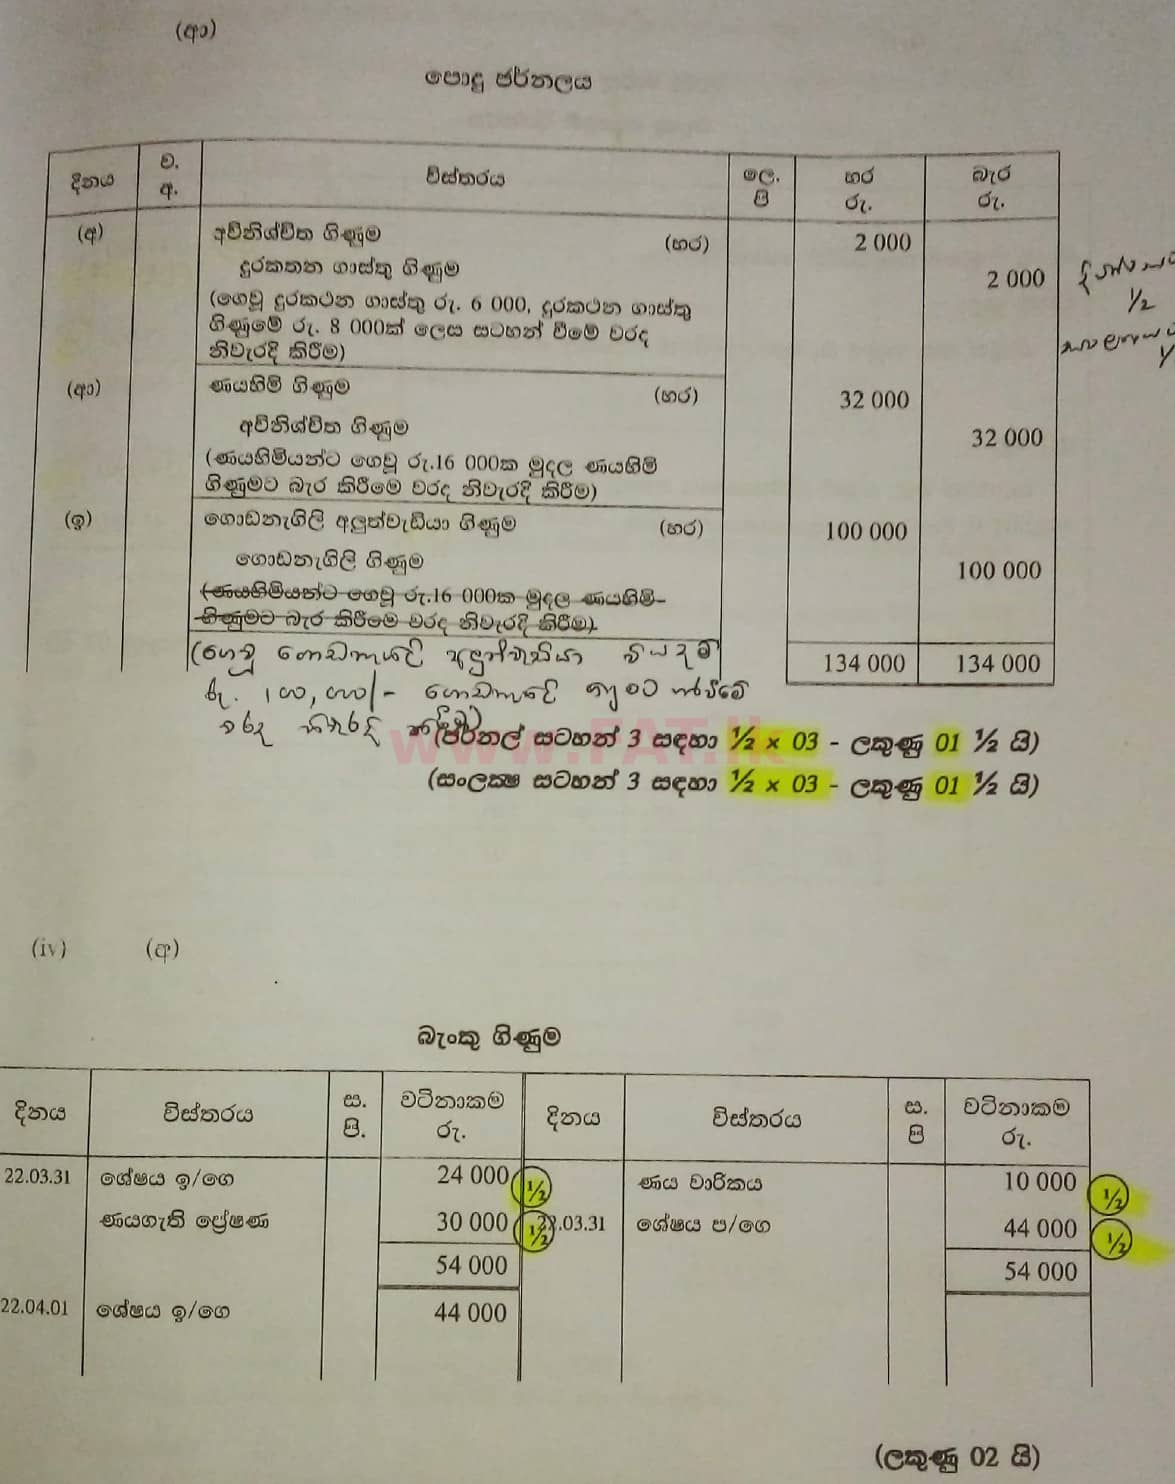 (ආ)
පොදු ජර්නලය
දිනය ව. අ. විස්තරය ලෙ. පි හර රු. බැර රු.
(අ) අවිනිශ්චිත ගිණුම (හර) 2 000
දුරකතන ගාස්තු ගිණුම 2 000
(ගෙවූ දුරකථන ගාස්තු රු. 6 000, දුරකථන ගාස්තු
ගිණුමේ රු. 8 000ක් ලෙස සටහන් වීමේ වරද
නිවැරදි කිරීම)
1/2
(ආ) ණයහිමි ගිණුම (හර) 32 000
අවිනිශ්චිත ගිණුම 32 000
(ණයහිමියන්ට ගෙවූ රු.16 000ක මුදල ණයහිමි
ගිණුමට බැර කිරීමෙ වරද නිවැරදි කිරීම)
(ඉ) ගොඩනැගිලි අලුත්වැඩියා ගිණුම (හර) 100 000
ගොඩනැගිලි ගිණුම 100 000
(ණයහිමියන්ට ගෙවූ රු.16 000ක මුදල ණයහිමි
ගිණුමට බැර කිරීමෙ වරද නිවැරදි කිරීම)
(ගෙවූ ගොඩනැගිලි අලුත්වැඩියා වියදම් 134 000 134 000
රු. 100,000/- ගොඩනැගිලි
වරද නිවැරදි කිරීම)
www.FAT.lk
(ජර්නල් සටහන් 3 සඳහා ½ x 03 - ලකුණු 01 ½ යි)
(සංලක්ෂ සටහන් 3 සඳහා ½ x 03 - ලකුණු 01 ½ යි)
(iv) (අ)
බැංකු ගිණුම
දිනය විස්තරය ස. පි. වටිනාකම රු. දිනය විස්තරය ස. පි වටිනාකම රු.
22.03.31 ශේෂය ඉ/ගෙ 24 000 ½ ණය වාරිකය 10 000 ½
ණයගැති ප්‍රේෂණ 30 000 ½ 22.03.31 ශේෂය ප/ගෙ 44 000 ½
54 000 54 000
22.04.01 ශේෂය ඉ/ගෙ 44 000
(ලකුණු 02 යි)